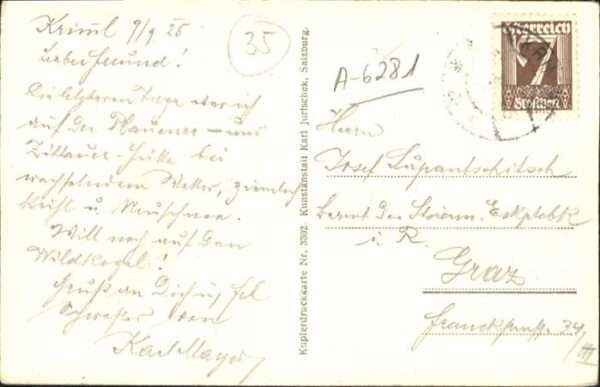 Kriml 9/9 25
35
Lieber Freund!
Die letzteren Tage war ich
auf der Plauener- und
Zittauer-Hütte bei
wechselndem Wetter, ziemlich
u. Neuschnee.
Will noch auf den
Wildkogel!
Gruß an Dich u. Frl
Schwester von
Karl Mayer
Kupferdruckkarte Nr. 3302. Kunstanstalt Karl Jurischek, Salzburg.
A-6281
Österreich
7
Groschen
Herrn
Josef Lupantschitsch
Beamt der Steierm. Eskptebk
i. R.
Graz
Franckstraße 34/III